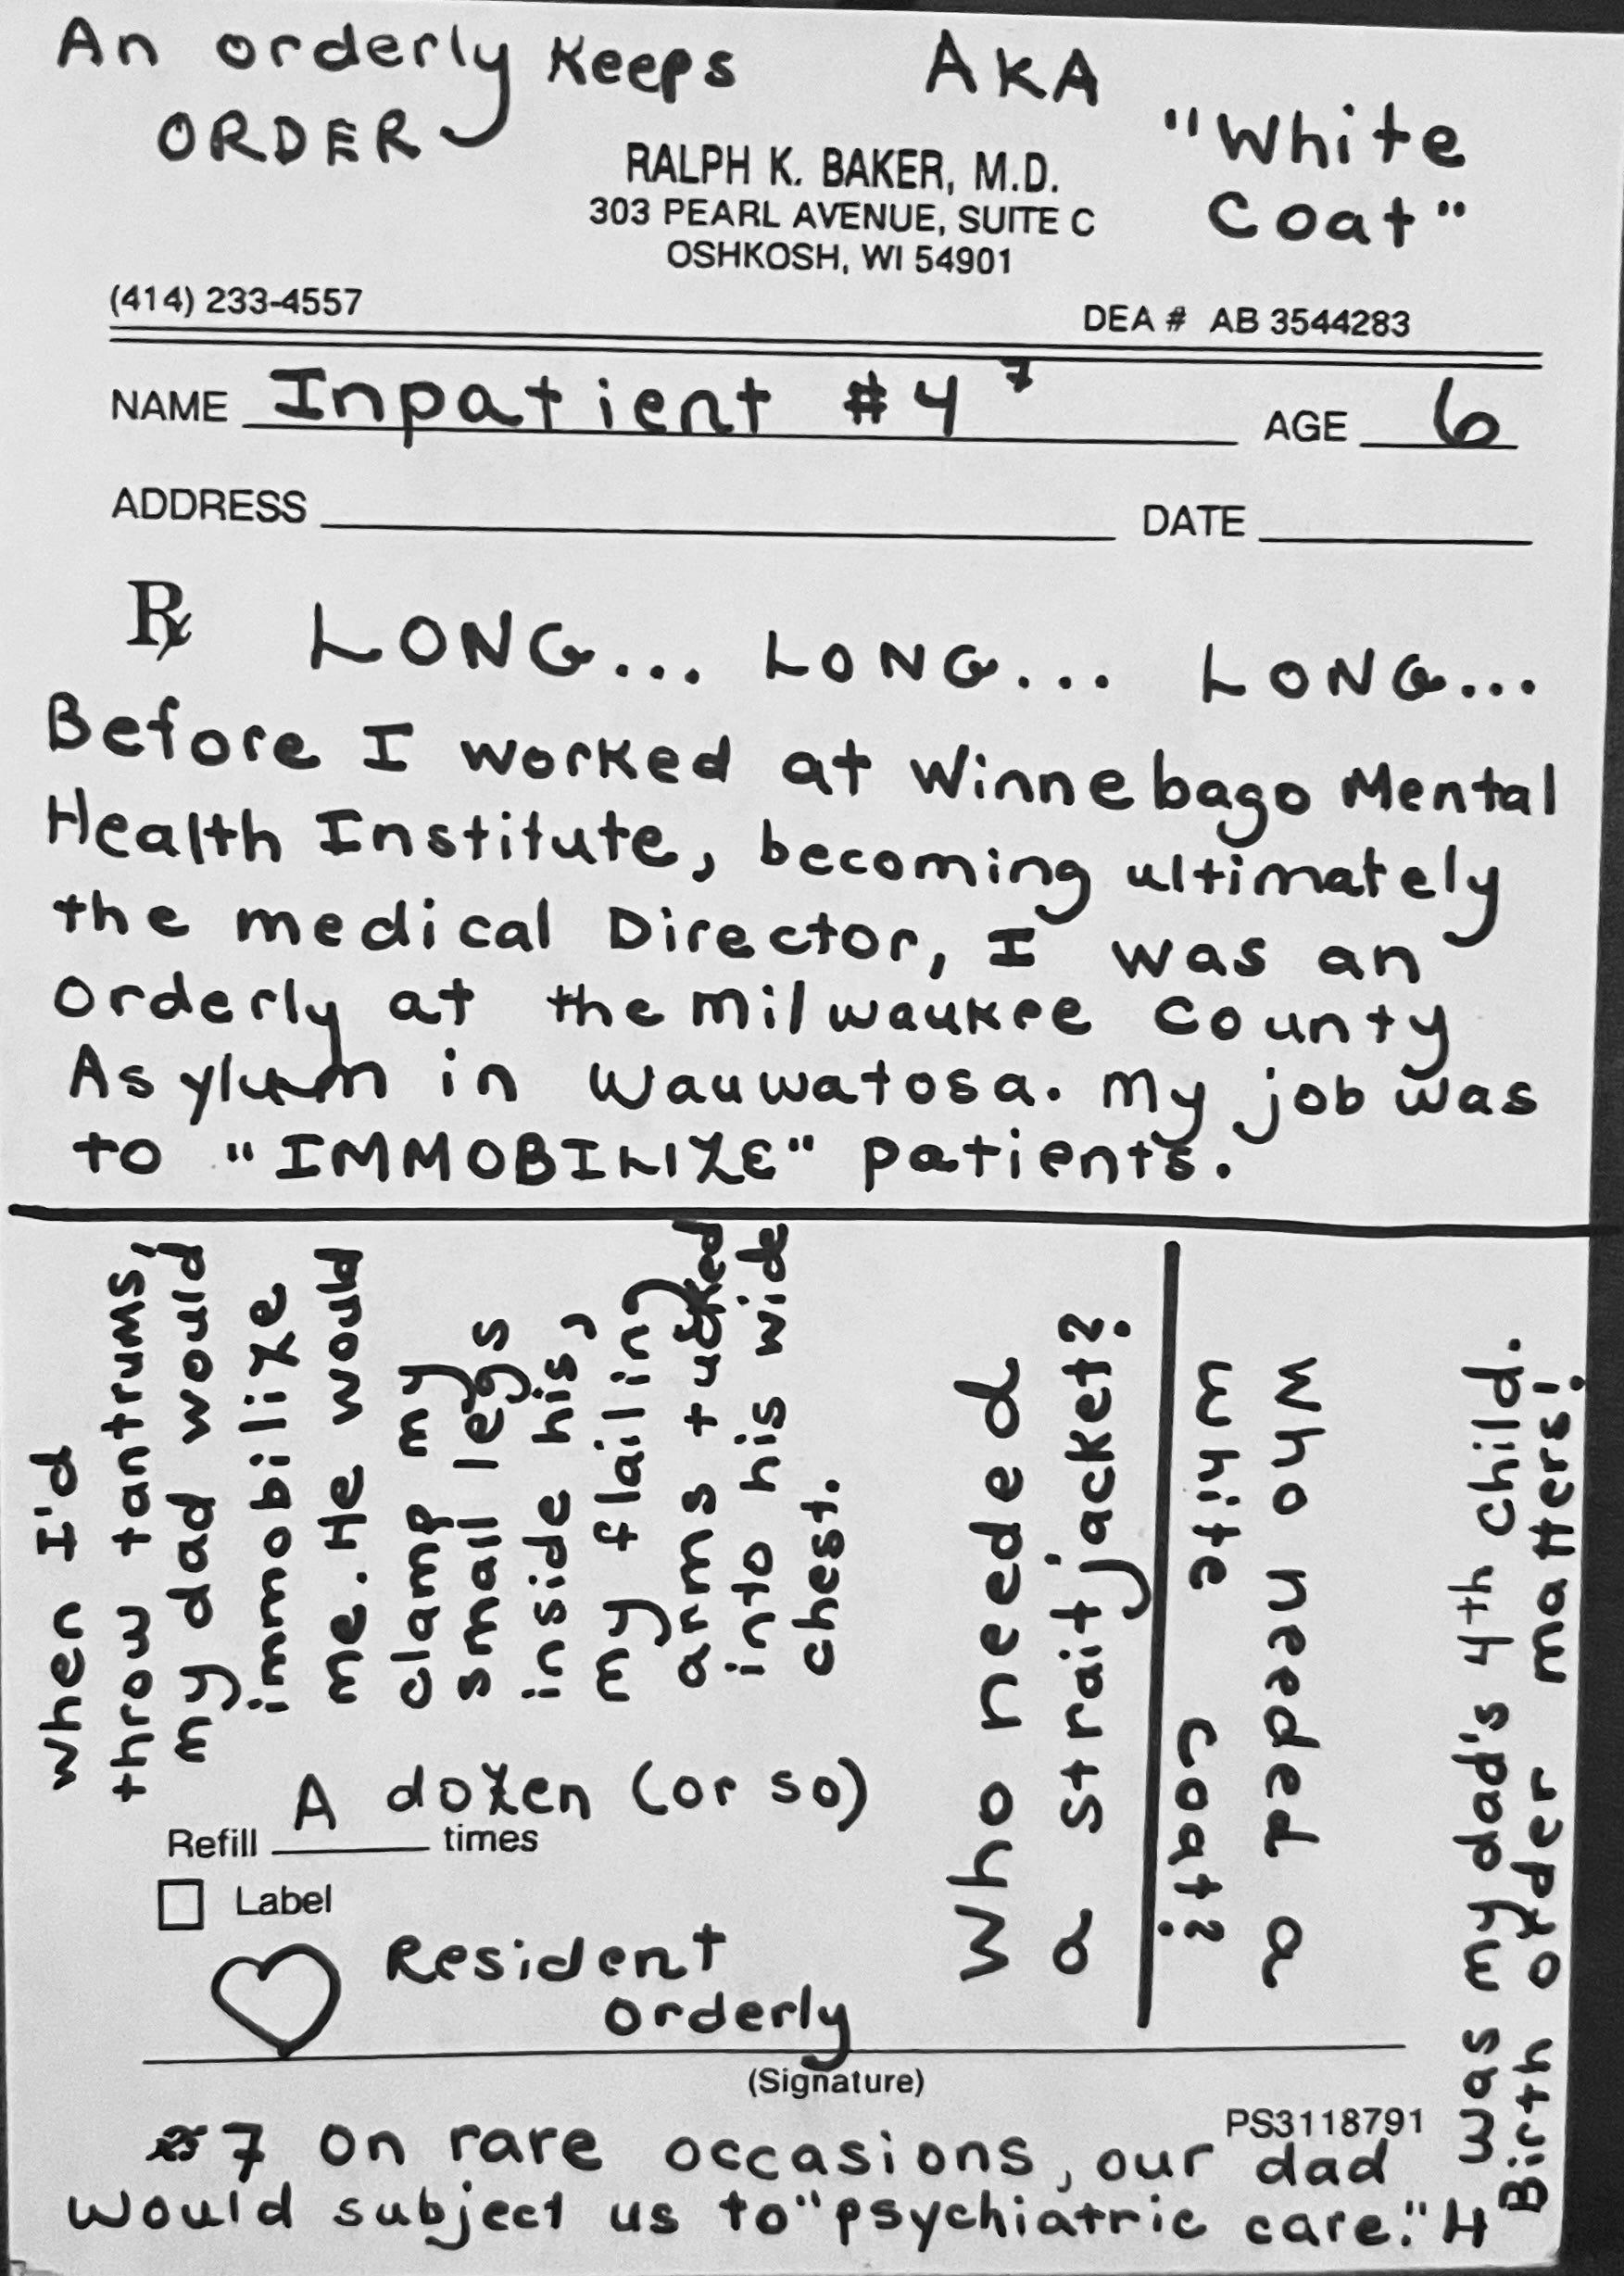 An orderly keeps
ORDER
AKA
"White
Coat"
RALPH K. BAKER, M.D.
303 PEARL AVENUE, SUITE C
OSHKOSH, WI 54901
(414) 233-4557
DEA # AB 3544283
NAME Inpatient #4 7 AGE 6
ADDRESS DATE
Rx LONG... LONG... LONG...
Before I worked at Winnebago Mental
Health Institute, becoming ultimately
the medical Director, I was an
Orderly at the Milwaukee County
Asylum in Wauwatosa. My job was
to "IMMOBILIZE" patients.
when I'd
throw tantrums,
my dad would
immobilize
me. He would
clamp my
small legs
inside his,
my flailing
arms tucked
into his wide
chest.
Who needed
a straitjacket?
Who needed a
white coat?
A dozen (or so)
Refill times
Label
Resident
orderly
(Signature)
PS3118791
7 On rare occasions, our dad
would subject us to "psychiatric care." #4
was my dad's 4th child.
Birth order matters!